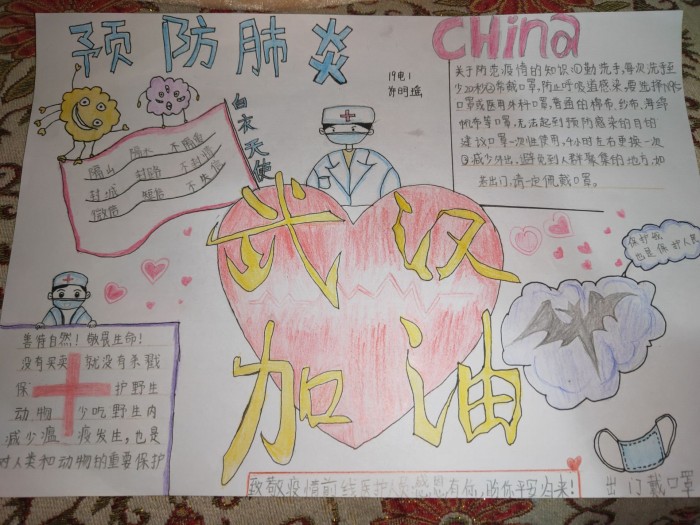 预防肺炎
CHina
19电1
白衣天使
关于防范疫情的知识①勤洗手,每次洗手至
少20秒②常戴口罩,防止呼吸道感染,要选择N95
口罩或医用外科口罩,普通的棉布,纱布,海绵
帆等口罩,无法起到预防感染的目的
建议口罩一次性使用,4小时左右更换一次
③减少外出,避免到人群聚集的地方,如
若出门,请一定佩戴口罩。
隔山 隔水 不隔爱
封城 封路
武汉
加油
保护我
也是保护人类
善待自然!敬畏生命!
没有买卖 就没有杀戮
保 护野生
动物 少吃野生肉
减少瘟 疫发生,也是
对人类和动物的重要保护
致敬疫情前线医护人员感恩有你,盼你平安归来!
出门戴口罩